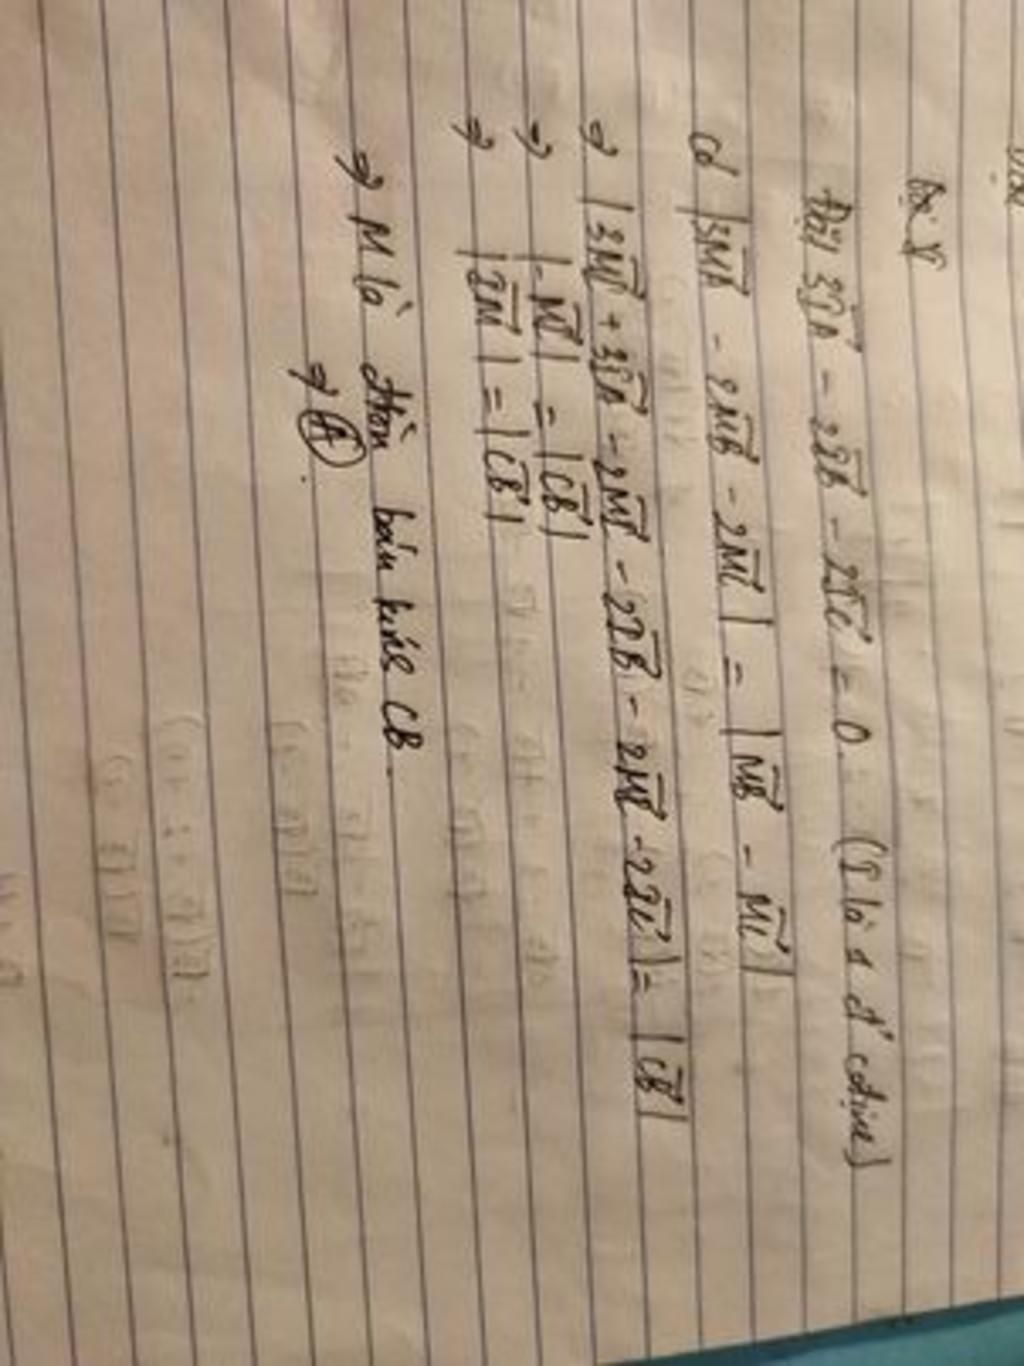 Đặt 3IA - 2IB - 2IC = 0. (I là 1 đ' cố định)
Có |3MA - 2MB - 2MC| = |MB - MC|
⇒ |3MI + 3IA - 2MI - 2IB - 2MI - 2IC| = |CB|
⇒ |-MI| = |CB|
⇒ |IM| = |CB|
⇒ M là đtròn bán kính CB.
⇒ A